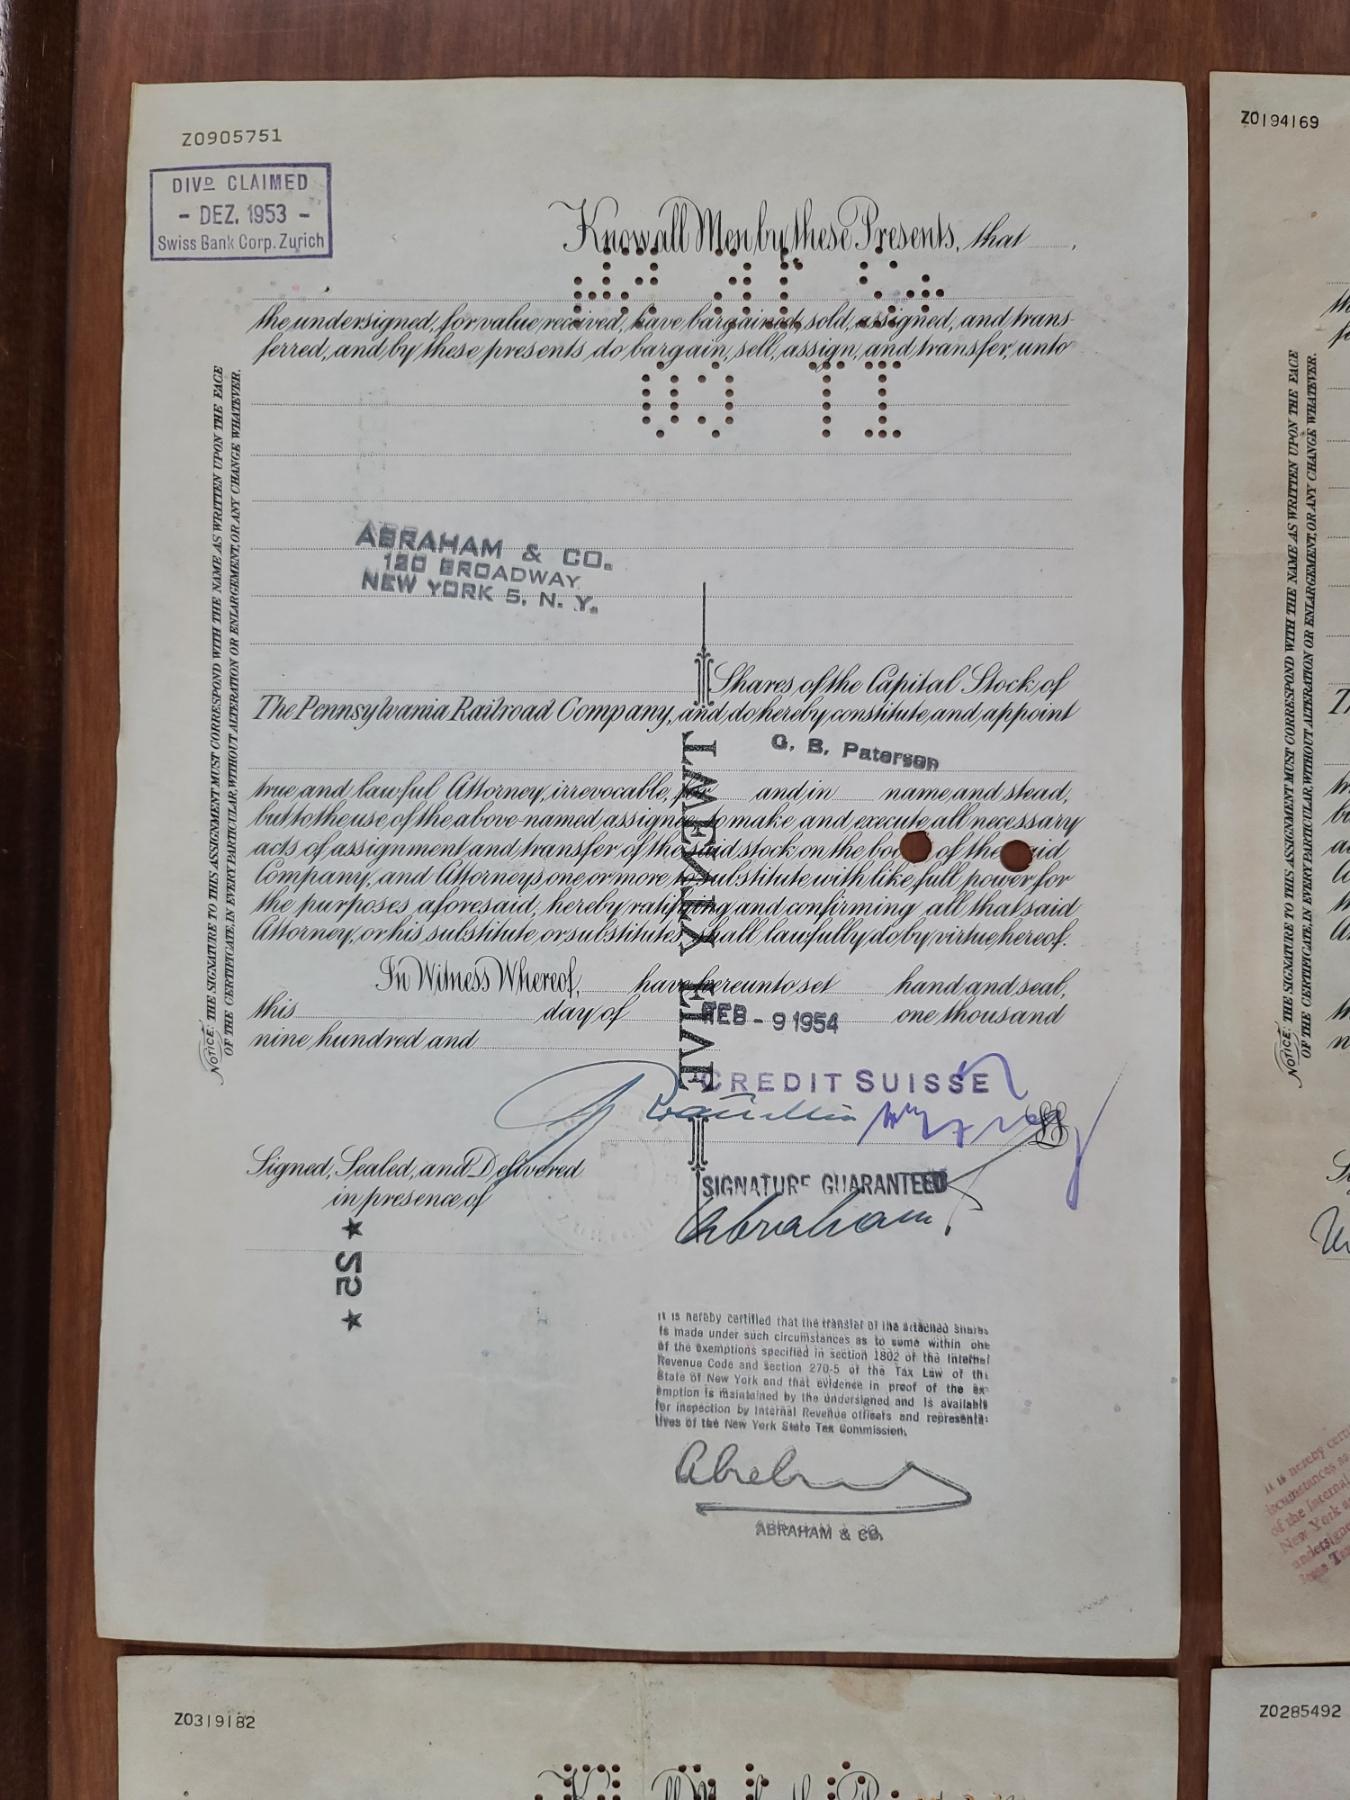 Z0905751
DIVD CLAIMED
- DEZ. 1953 -
Swiss Bank Corp. Zurich
Know all Men by these Presents, that
the undersigned, for value received, have bargained, sold, assigned, and trans-
ferred, and by these presents do bargain, sell, assign, and transfer, unto
ABRAHAM & CO.
120 BROADWAY
NEW YORK 5, N. Y.
Shares of the Capital Stock of
The Pennsylvania Railroad Company, and do hereby constitute and appoint
G. B. Paterson
true and lawful Attorney, irrevocable, for and in name and stead,
but to the use of the above-named assignee to make and execute all necessary
acts of assignment and transfer of the said stock on the books of the said
Company, and Attorneys one or more to substitute with like full power for
the purposes aforesaid, hereby ratifying and confirming all that said
Attorney, or his substitute or substitutes, shall lawfully do by virtue hereof.
In Witness Whereof, have hereunto set hand and seal,
this day of FEB - 9 1954 one thousand
nine hundred and
CREDIT SUISSE
LS
Signed, Sealed, and Delivered
in presence of
SIGNATURE GUARANTEED
Abraham
★ 25 ★
TWENTY FIVE
It is hereby certified that the transfer of the attached Shares
is made under such circumstances as to come within one
of the exemptions specified in section 1802 of the Internal
Revenue Code and section 270-5 of the Tax Law of the
State of New York and that evidence in proof of the ex-
emption is maintained by the undersigned and is available
for inspection by Internal Revenue officers and representa-
tives of the New York State Tax Commission.
ABRAHAM & CO.
NOTICE: THE SIGNATURE TO THIS ASSIGNMENT MUST CORRESPOND WITH THE NAME AS WRITTEN UPON THE FACE
OF THE CERTIFICATE, IN EVERY PARTICULAR, WITHOUT ALTERATION OR ENLARGEMENT, OR ANY CHANGE WHATEVER.
Z0194169
NOTICE: THE SIGNATURE TO THIS ASSIGNMENT MUST CORRESPOND WITH THE NAME AS WRITTEN UPON THE FACE
OF THE CERTIFICATE, IN EVERY PARTICULAR, WITHOUT ALTERATION OR ENLARGEMENT, OR ANY CHANGE WHATEVER.
Z0319182
Z0285492